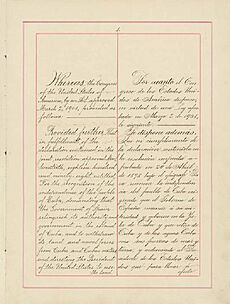 Whereas the Congress
of the United States of
America, by an Act approved
March 2, 1901, provided as
follows:
Provided further, That
in fulfillment of the
declaration contained in the
joint resolution approved April
twentieth, eighteen hundred
and ninety-eight, entitled
"For the recognition of the
independence of the people of
Cuba, demanding that
the Government of Spain
relinquish its authority and
government in the island
of Cuba, and to withdraw
its land and naval forces
from Cuba and Cuban waters,
and directing the President
of the United States to use
the land
Por cuanto el Con-
greso de los Estados Uni-
dos de America dispuso,
en virtud de una ley apro-
bada en Marzo 2 de 1901,
lo siguiente:
Se dispone además,
Que en cumplimiento de
la declaracion contenida en
la resolucion conjunta
probada en 20 de Abril
de 1898 bajo el epigrafe "Pa-
ra reconocer la independen-
cia del pueblo de Cuba exi-
giendo que el Gobierno de
España renuncie a su auto-
ridad y gobierno en la Isla
de Cuba, y que retire de
Cuba y de las aguas Cuba-
nas sus fuerzas de mar y
tierra, y ordenando al Presi-
dente de los Estados Uni-
dos que para llevar a
efecto